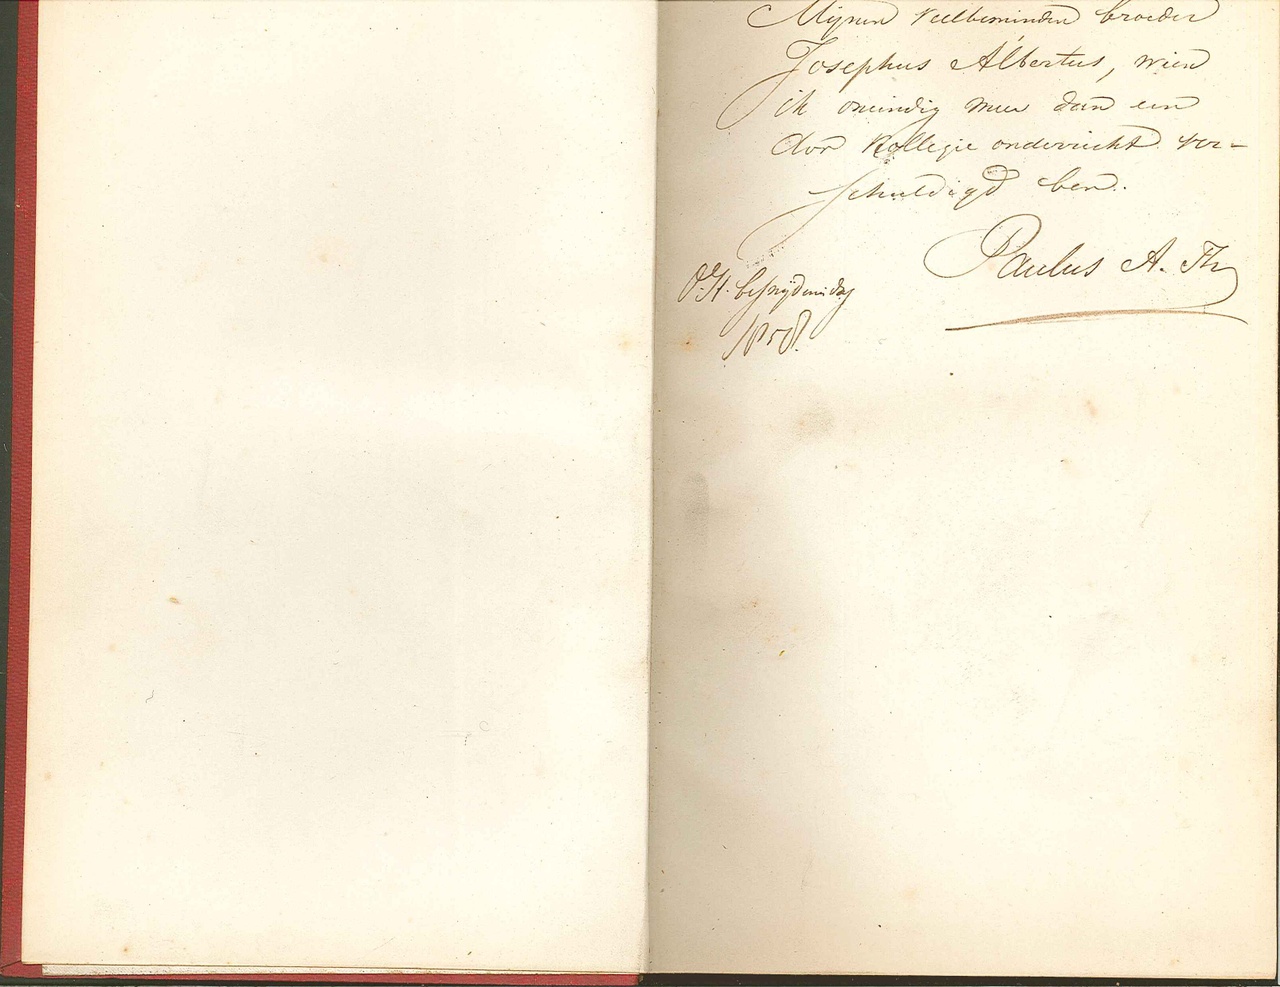 Mijnen veelbeminden broeder
Josephus Albertus, wien
ik oneindig meer dan een
dor Kollegie onderricht ver-
schuldigd ben.
Paulus A. Th
O.H. besnijdenisdag
1858.